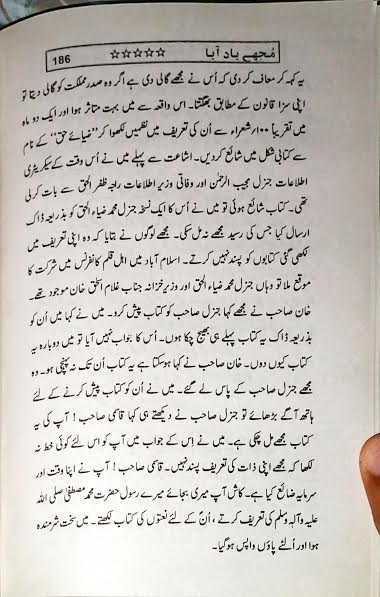 مجھے یاد آیا ☆☆☆☆☆ 186
یہ کہہ کر معاف کر دی کہ اُس نے مجھے گالی دی ہے اگر وہ صدر مملکت کو گالی دیتا تو
اپنی سزا قانون کے مطابق بھگتتا۔ اس واقعہ سے میں بہت متاثر ہوا اور ایک دو ماہ
میں تقریباً ۱۰۰ شعراء سے اُن کی تعریف میں نظمیں لکھوا کر ’’ضیائے حق‘‘ کے نام
سے کتابی شکل میں شائع کردیں۔ اشاعت سے پہلے میں نے اُس وقت کے سیکریٹری
اطلاعات جنرل مجیب الرحمٰن اور وفاقی وزیر اطلاعات راجہ ظفر الحق سے بات کرلی
تھی۔ کتاب شائع ہوئی تو میں نے اُس کا ایک نسخہ جنرل محمد ضیاء الحق کو بذریعہ ڈاک
ارسال کیا جس کی رسید مجھے نہ مل سکی۔ مجھے لوگوں نے بتایا کہ وہ اپنی تعریف میں
لکھی گئی کتابوں کو پسند نہیں کرتے۔ اسلام آباد میں اہل قلم کانفرنس میں شرکت کا
موقع ملا تو وہاں جنرل محمد ضیاء الحق اور وزیر خزانہ جناب غلام اسحٰق خان موجود تھے۔
خان صاحب نے مجھے کہا جنرل صاحب کو کتاب پیش کرو۔ میں نے کہا میں اُن کو
بذریعہ ڈاک یہ کتاب پہلے ہی بھیج چکا ہوں۔ اُس کا جواب نہیں آیا تو میں دوبارہ یہ
کتاب کیوں دوں۔ خان صاحب نے کہا ہوسکتا ہے یہ کتاب اُن تک نہ پہنچی ہو۔ وہ
مجھے جنرل صاحب کے پاس لے گئے۔ میں نے اُن کو کتاب پیش کرنے کے لئے
ہاتھ آگے بڑھائے تو جنرل صاحب نے دیکھتے ہی کہا قاسمی صاحب! آپ کی یہ
کتاب مجھے مل چکی ہے۔ میں نے اِس کے جواب میں آپ کو اس لئے کوئی خط نہ
لکھا کہ مجھے اپنی ذات کی تعریف پسند نہیں۔ قاسمی صاحب! آپ نے اپنا وقت اور
سرمایہ ضائع کیا ہے۔ کاش آپ میری بجائے میرے رسول حضرت محمد مصطفیٰ صلی اللہ
علیہ وآلہ وسلم کی تعریف کرتے، اُن کے لئے نعتوں کی کتاب لکھتے۔ میں سخت شرمندہ
ہوا اور اُلٹے پاؤں واپس ہوگیا۔